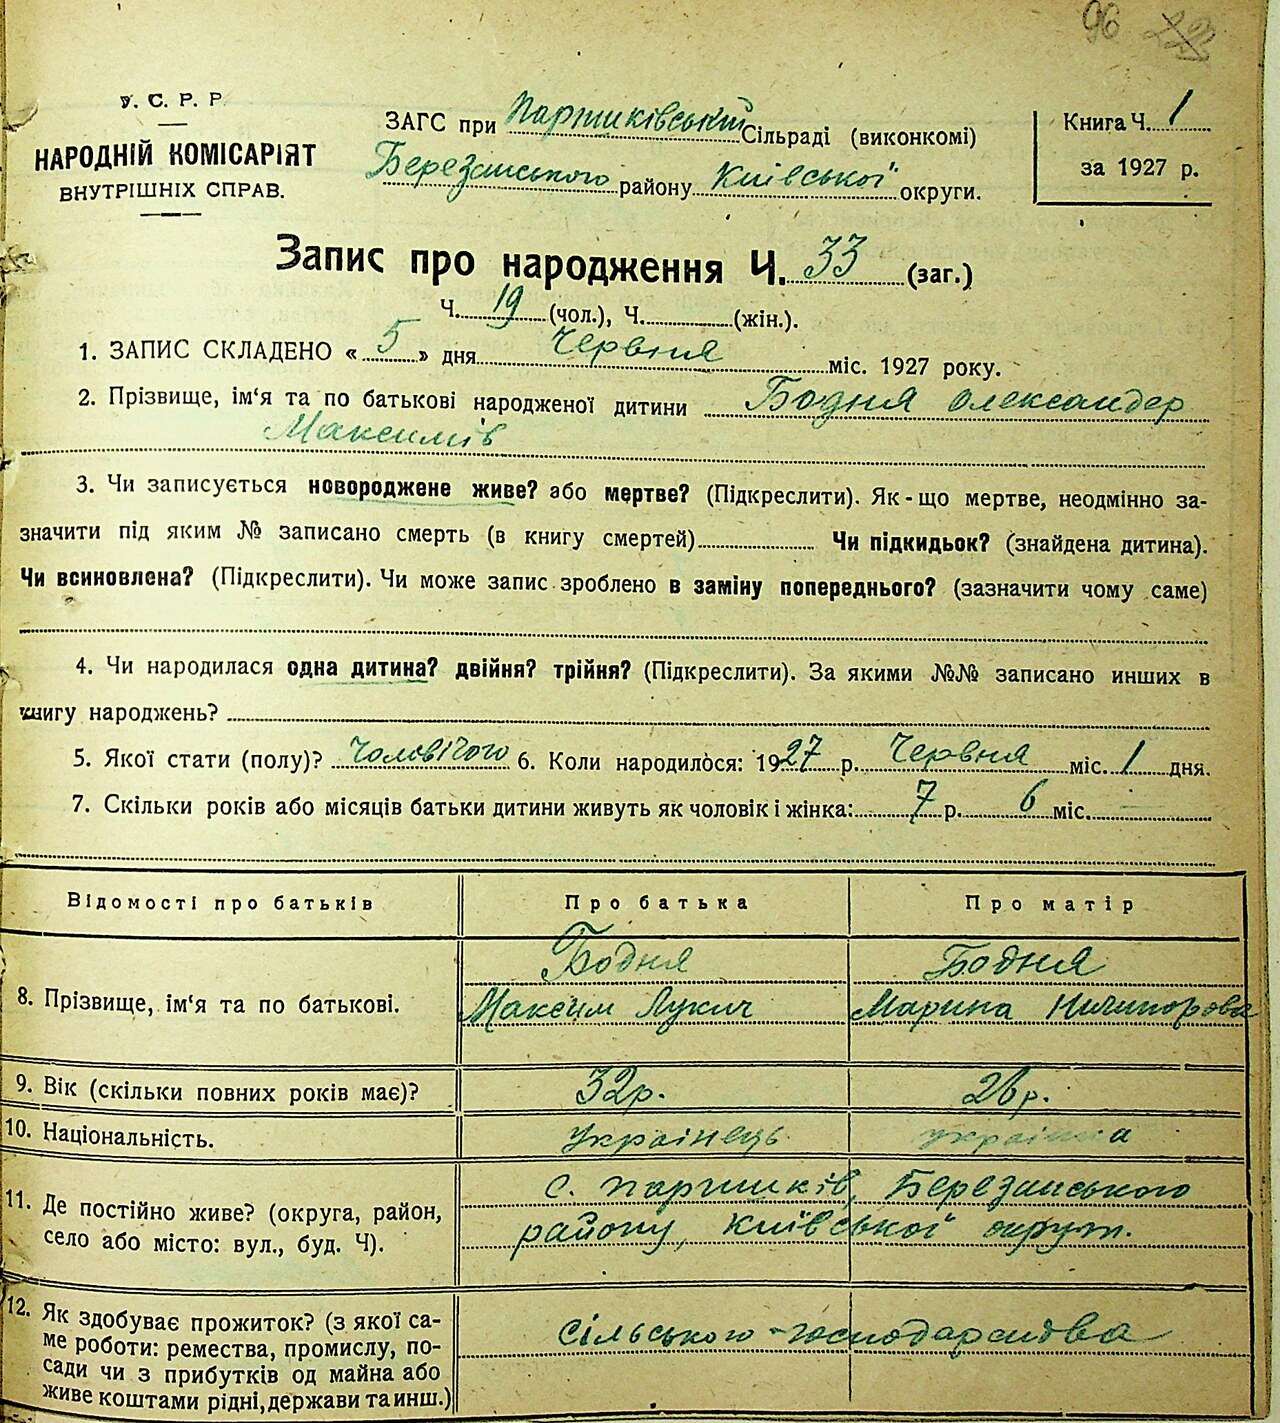 96 22
У. С. Р. Р.
НАРОДНІЙ КОМІСАРІЯТ
ВНУТРІШНІХ СПРАВ.
ЗАГС при Паришківський Сільраді (виконкомі)
Березанського району Київської округи.
Книга Ч. 1
за 1927 р.
Запис про народження Ч. 33 (заг.)
Ч. 19 (чол.), Ч. (жін.).
1. ЗАПИС СКЛАДЕНО « 5 » дня Червня міс. 1927 року.
2. Прізвище, ім‘я та по батькові народженої дитини Бодня Олександер
Максимів
3. Чи записується новороджене живе? або мертве? (Підкреслити). Як-що мертве, неодмінно за-
значити під яким № записано смерть (в книгу смертей) Чи підкидьок? (знайдена дитина).
Чи всиновлена? (Підкреслити). Чи може запис зроблено в заміну попереднього? (зазначити чому саме)
4. Чи народилася одна дитина? двійня? трійня? (Підкреслити). За якими №№ записано инших в
книгу народжень?
5. Якої стати (полу)? Чоловічого 6. Коли народилося: 1927 р. Червня міс. 1 дня.
7. Скільки років або місяців батьки дитини живуть як чоловік і жінка: 7 р. 6 міс.
Відомості про батьків Про батька Про матір
8. Прізвище, ім‘я та по батькові. Бодня Бодня
Максим Лукич Марина Ничипорова
9. Вік (скільки повних років має)? 32р. 26р.
10. Національність. Українець українка
11. Де постійно живе? (округа, район, с. Паришків, Березанського
село або місто: вул., буд. Ч). району, Київської округи.
12. Як здобуває прожиток? (з якої са- сільського-господарства
ме роботи: ремества, промислу, по-
сади чи з прибутків од майна або
живе коштами рідні, держави та инш.)